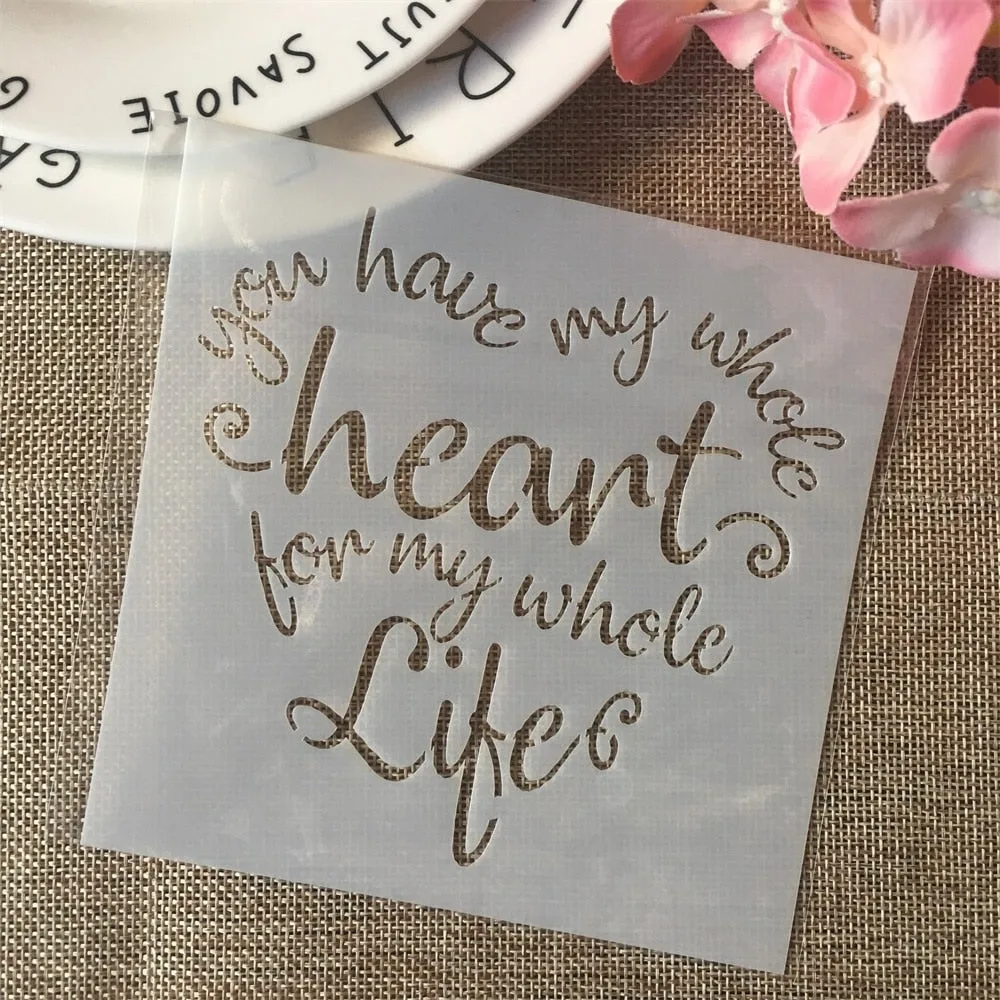 JUST SAVOIE
you have my whole
heart
for my whole
Life